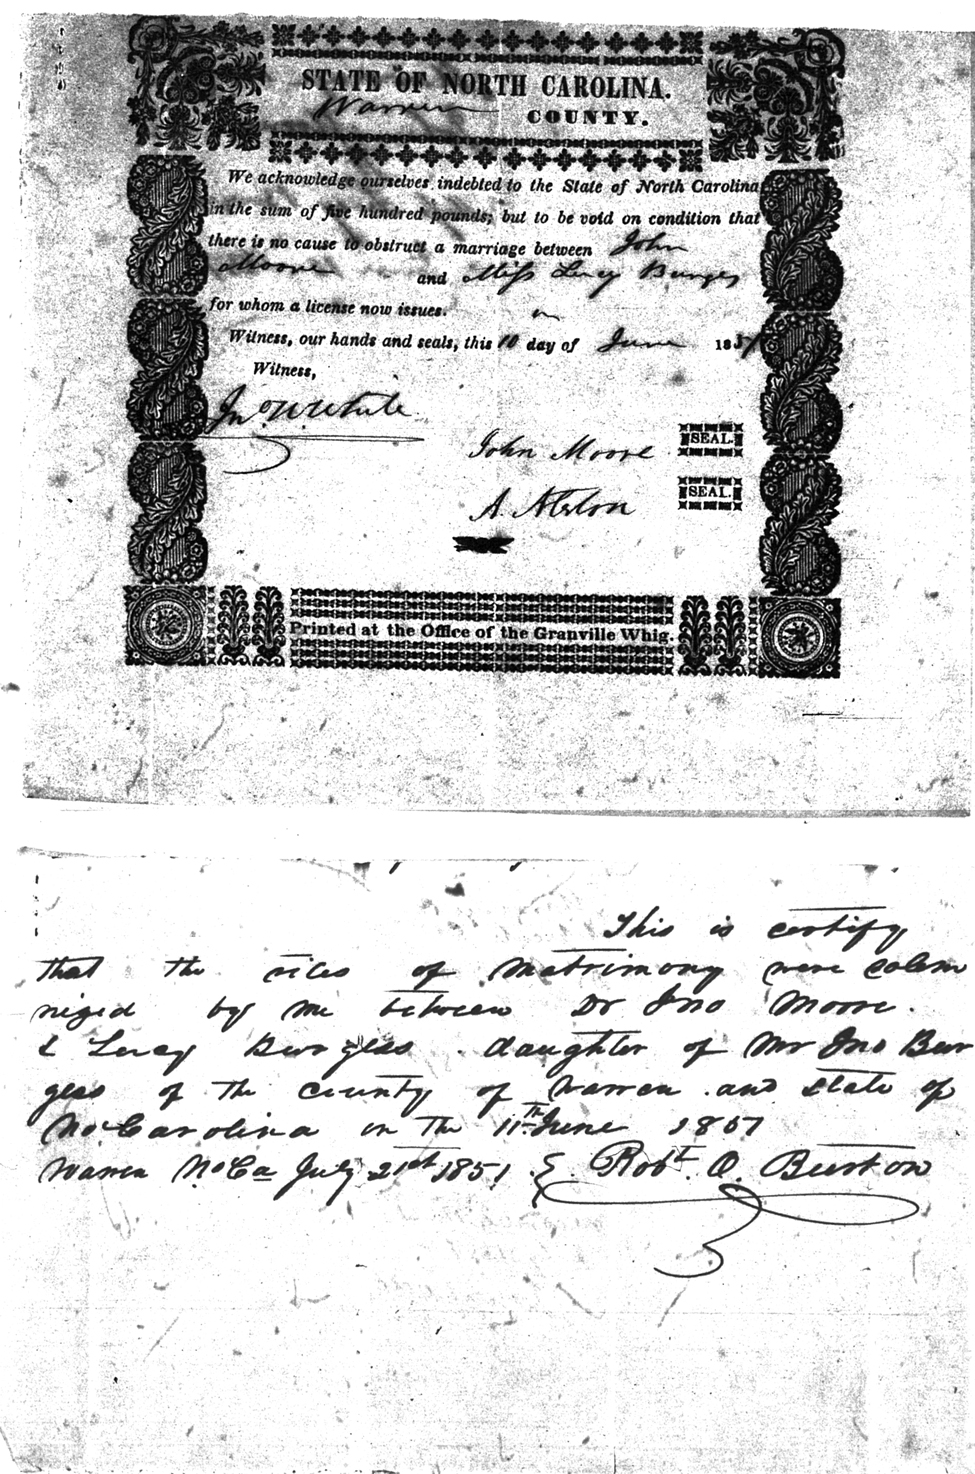 STATE OF NORTH CAROLINA.
Warren COUNTY.
We acknowledge ourselves indebted to the State of North Carolina
in the sum of five hundred pounds; but to be void on condition that
there is no cause to obstruct a marriage between John
Moore and Miss Lucy Burges
for whom a license now issues.
Witness, our hands and seals, this 10 day of June 1851
Witness,
Jno W White
John Moore SEAL.
A. Alston SEAL.
Printed at the Office of the Granville Whig.
This is certify
that the rites of matrimony were solem
nized by me between Dr Jno Moore
& Lucy Burgess daughter of Mr Jno Bur
gess of the county of Warren and state of
No Carolina on the 11th June 1851
Warren No Ca July 21st 1851 } Robt. O. Burton